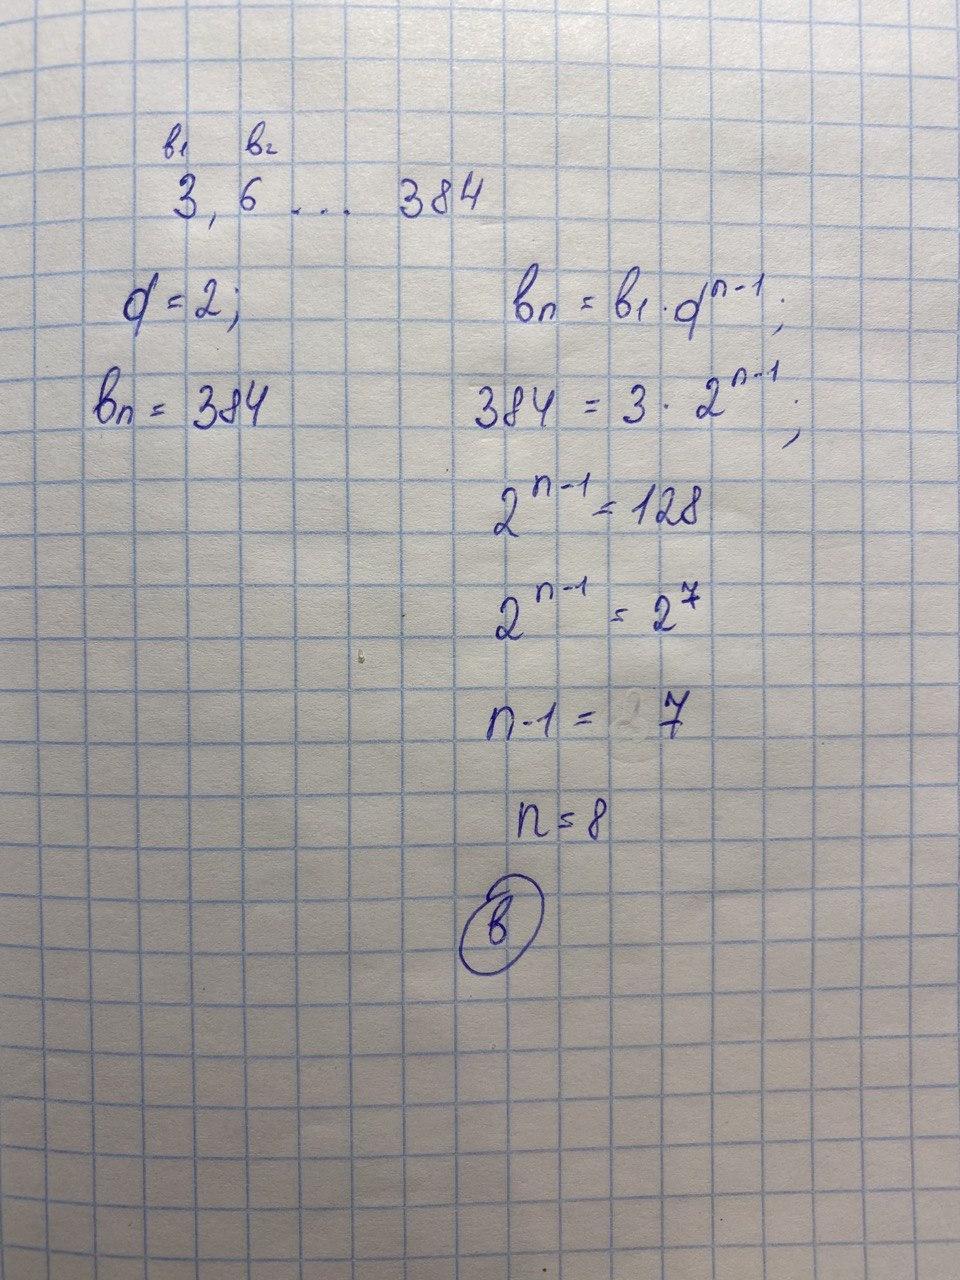 в₁ в₂
3, 6 ... 384
q = 2;
вₙ = 384
вₙ = в₁ · qⁿ⁻¹;
384 = 3 · 2ⁿ⁻¹;
2ⁿ⁻¹ = 128
2ⁿ⁻¹ = 2⁷
n-1 = 7
n = 8
в